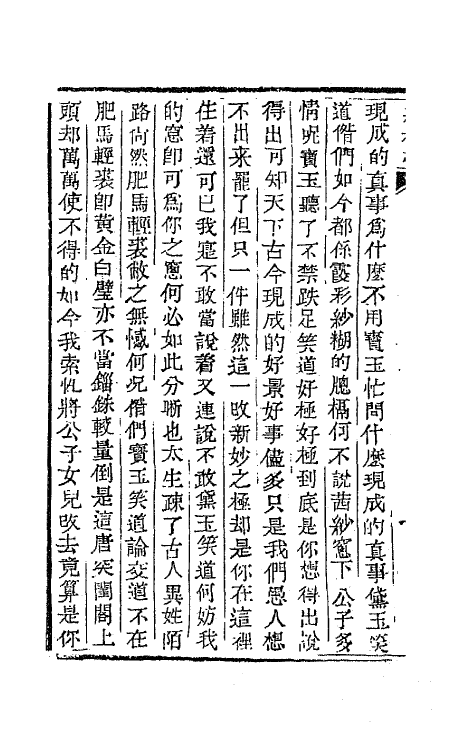 現成的真事爲什麽不用寳玉忙問什麽現成的真事黛玉笑
道偺們如今都係霞彩紗糊的窻槅何不說茜紗窻下公子多
情呢寳玉聽了不禁跌足笑道好極好極到底是你想得出說
得出可知天下古今現成的好景好事儘多只是我們愚人想
不出来罷了但只一件雖然這一改新妙之極却是你在這裡
住着還可已我寔不敢當說着又連說不敢黛玉笑道何妨我
的窻即可爲你之窻何必如此分晣也太生疎了古人異姓陌
路尙然肥馬輕裘敝之無憾何况偺們寳玉笑道論交道不在
肥馬輕裘卽黃金白璧亦不當錙銖較量倒是這唐突閨閣上
頭却萬萬使不得的如今我索性將公子女兒改去竟算是你